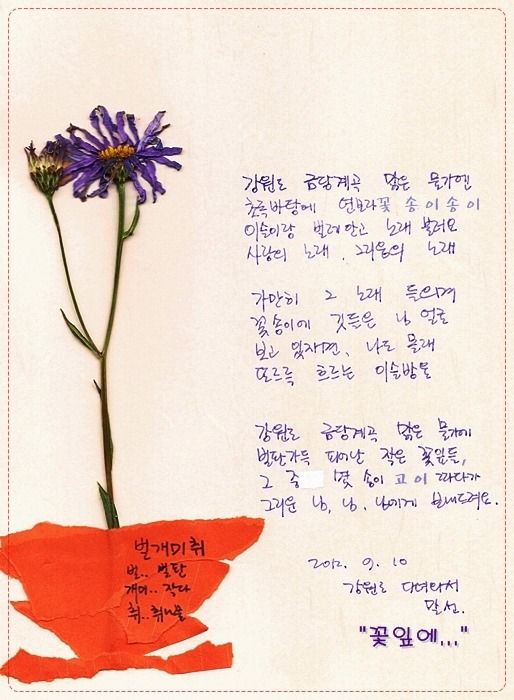 강원도 금당계곡 맑은 물가엔
초록바탕에 연보라꽃 송이송이
이슬이랑 벌레안고 노래 불러요
사랑의 노래, 그리움의 노래
가만히 그 노래 들으며
꽃송이에 깃든 님 얼굴
보고 있자면, 나도 몰래
또르륵 흐르는 이슬방울
강원도 금당계곡 맑은 물가에
벌판가득 피어난 작은 꽃잎들,
그 중 몇 송이 고이 따다가
그리운 님, 님, 님에게 보내드려요.
2012. 9. 10
강원도 다녀와서
말선.
"꽃잎에..."
벌개미취
벌.. 벌판
개미.. 작다
취..취나물